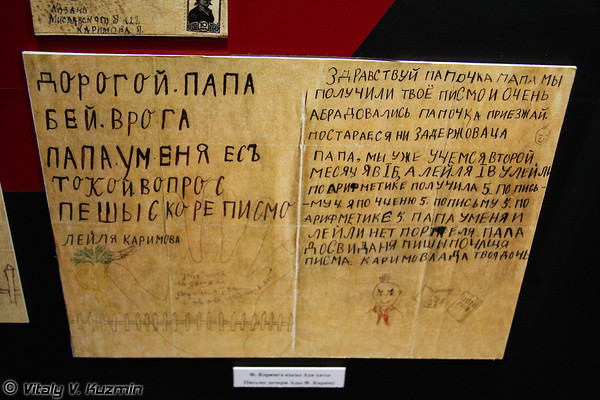 КАЗАНЬ
КАРИМОВА Я.
ДОРОГОЙ.ПАПА
БЕЙ.ВРОГА
ПАПА.УМЕНЯ ЕСЪ
ТОКОЙВОПРОС
ПЕШЫ СКОРЕ ПИСМО
ЛЕЙЛЯ КАРИМОВА
ЗДРАВСТВУЙ ПАПОЧКА ПАПА МЫ
ПОЛУЧИЛИ ТВОЁ ПИСМО И ОЧЕНЬ
АБРАДОВАЛИСЬ ПАПОЧКА ПРИЕЗЖАЙ.
ПОСТАРАЕСЯ НИ ЗАДЕРЖОВАЦА
ПАПА, МЫ УЖЕ УЧЕМСЯ ВТОРОЙ
МЕСЯЦ Я В IБ, А ЛЕЙЛЯ I В У ЛЕЙЛИ
ПО АРИФМЕТИКЕ ПОЛУЧИЛА 5. ПО ПИСЬ-
МУ 4. Я ПО ЧИЕНЮ 5. ПО ПИСЬМУ 5. ПО
АРИФМЕТИКЕ 5. ПАПА УМЕНЯ И
ЛЕЙЛИ НЕТ ПОРТФЕЛЯ. ПАПА
ДОСВИДАНЯ ПИШЫ ПОЧАЩА
ПИСМА. КАРИМОВА АДА ТВОЯ ДОЧЬ
Ф. Кәримгә кызы Ада хаты
Письмо дочери Ады Ф. Кариму
© Vitaly V. Kuzmin